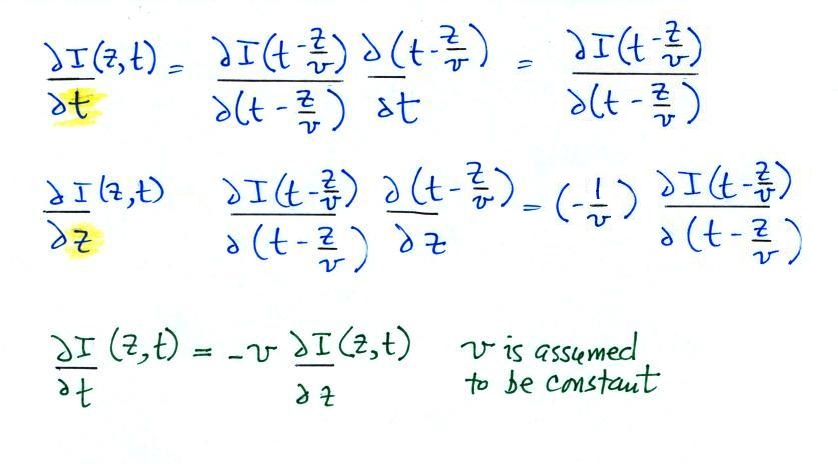 ∂I(z,t)/∂t = ∂I(t-z/v)/∂(t-z/v) ∂(t-z/v)/∂t = ∂I(t-z/v)/∂(t-z/v)
∂I(z,t)/∂z ∂I(t-z/v)/∂(t-z/v) ∂(t-z/v)/∂z = (-1/v) ∂I(t-z/v)/∂(t-z/v)
∂I/∂t (z,t) = -v ∂I/∂z (z,t) v is assumed
to be constant